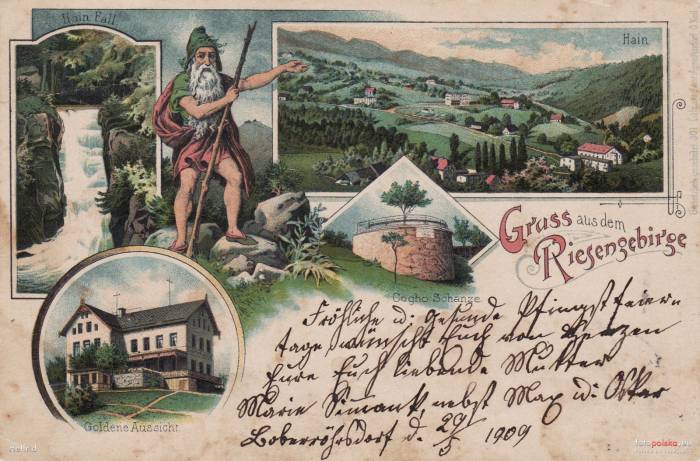 Hain Fall
Hain
Gruss aus dem
Riesengebirge
Cogho Schanze
Goldene Aussicht
Fröhliche u. Gesunde Pfingstfeier-
tage wünscht Euch von Herzen
Eure Euch liebende Mutter
Marie Simank, nebst Max u. Oskar
Boberröhrsdorf d. 29/5 1909
fotopolska.eu